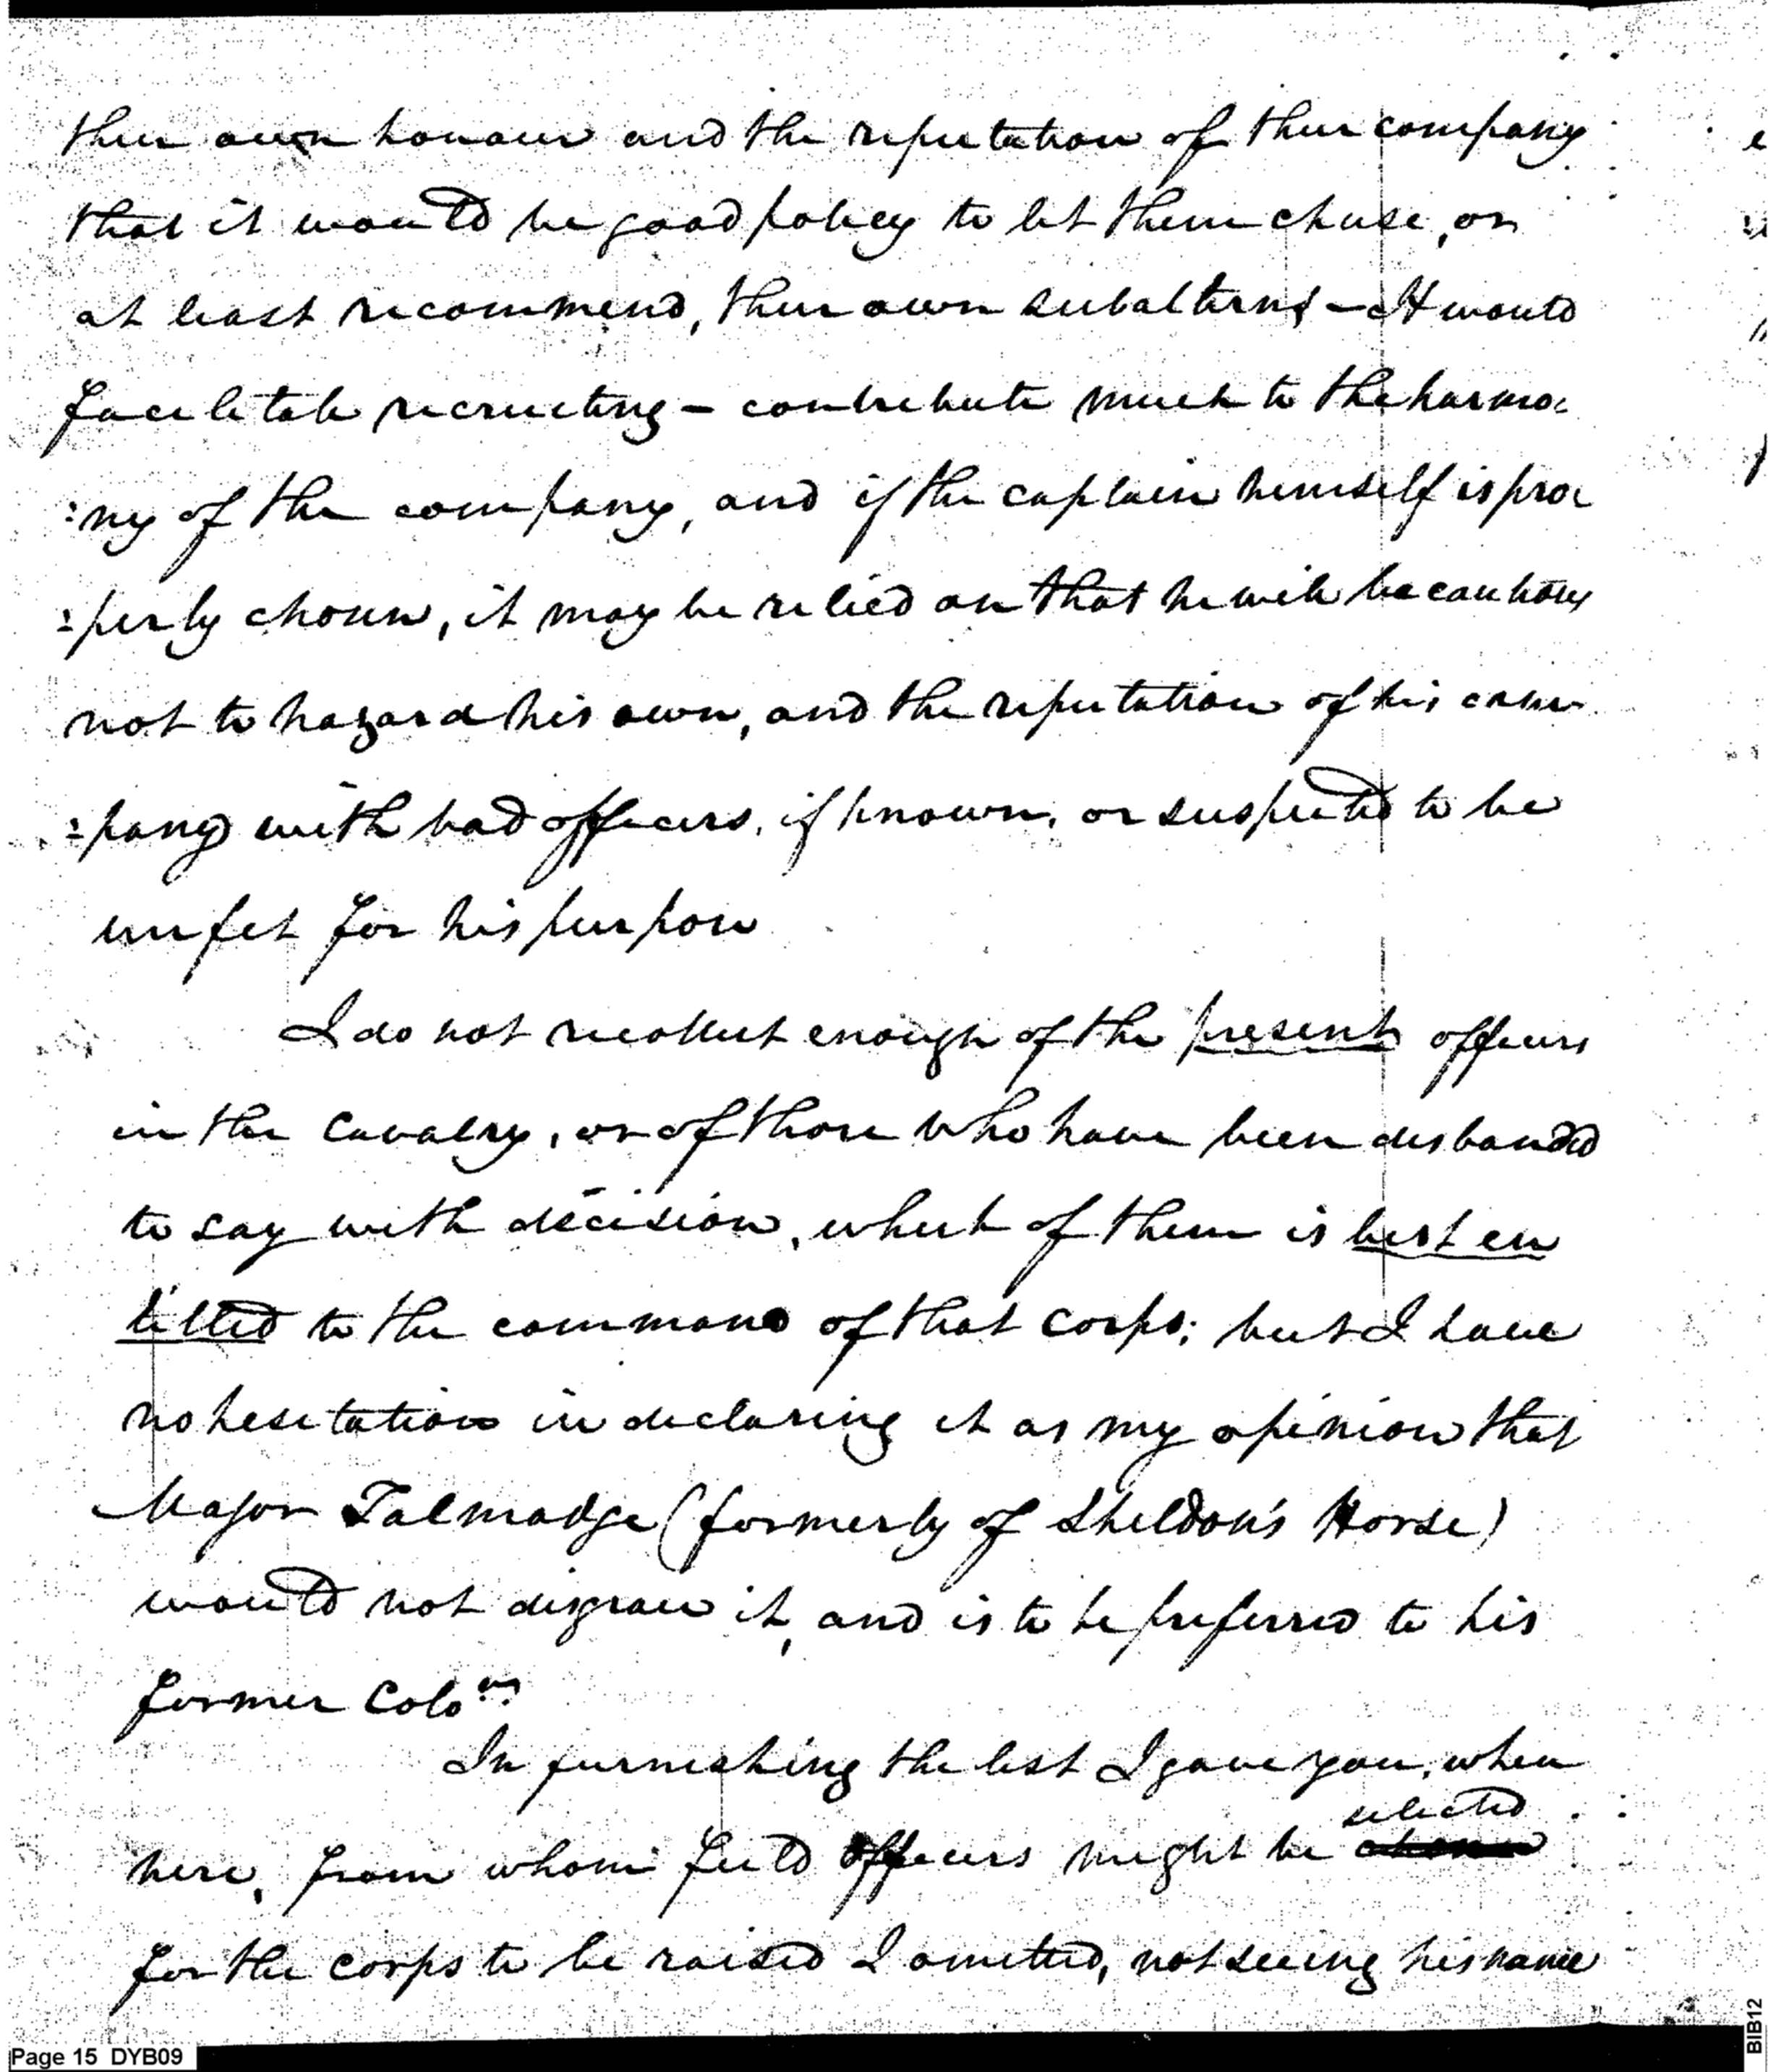 their own honour and the reputation of their company
that it would be good policy to let them chuse, or
at least recommend, their own subalterns – It would
facilitate recruiting – contribute much to the harmo:
:ny of the company, and if the captain himself is pro:
:perly chosen, it may be relied on that he will be cautious
not to hazard his own, and the reputation of his com
:pany with bad officers, if known, or suspected to be
unfit for his purpose
I do not recollect enough of the present officers
in the Cavalry, or of those who have been disbanded
to say with decision, which of them is best en
titled to the command of that Corps; but I have
no hesitation in declaring it as my opinion that
Major Talmadge (formerly of Sheldon's Horse)
would not disgrace it, and is to be preferred to his
former Colo
In furnishing the list I gave you, when
selected
here, from whom field Officers might be
for the Corps to be raised I omitted, not seeing his name
Page 15 DYB09
BIB12